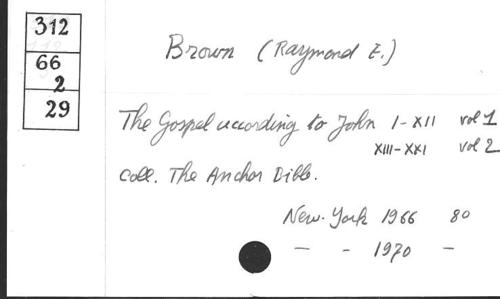 312
66
2
29
Brown (Raymond E.)
The Gospel according to John I-XII vol 1
XIII-XXI vol 2
Coll. The Anchor Bible.
New-York 1966 80
— - 1970 —